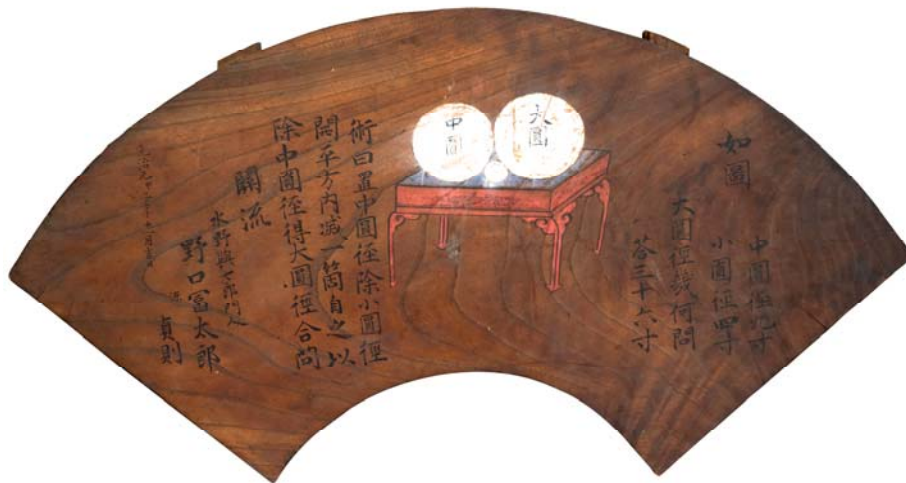 如圖
中圓徑九寸
小圓徑四寸
大圓徑幾何問
答三十六寸
大圓
中圓
術曰置中圓徑除小圓徑
開平方内減一箇自之以
除中圓徑得大圓徑合問
關流
水野與七郎門人
野口冨太郎
源
貞則